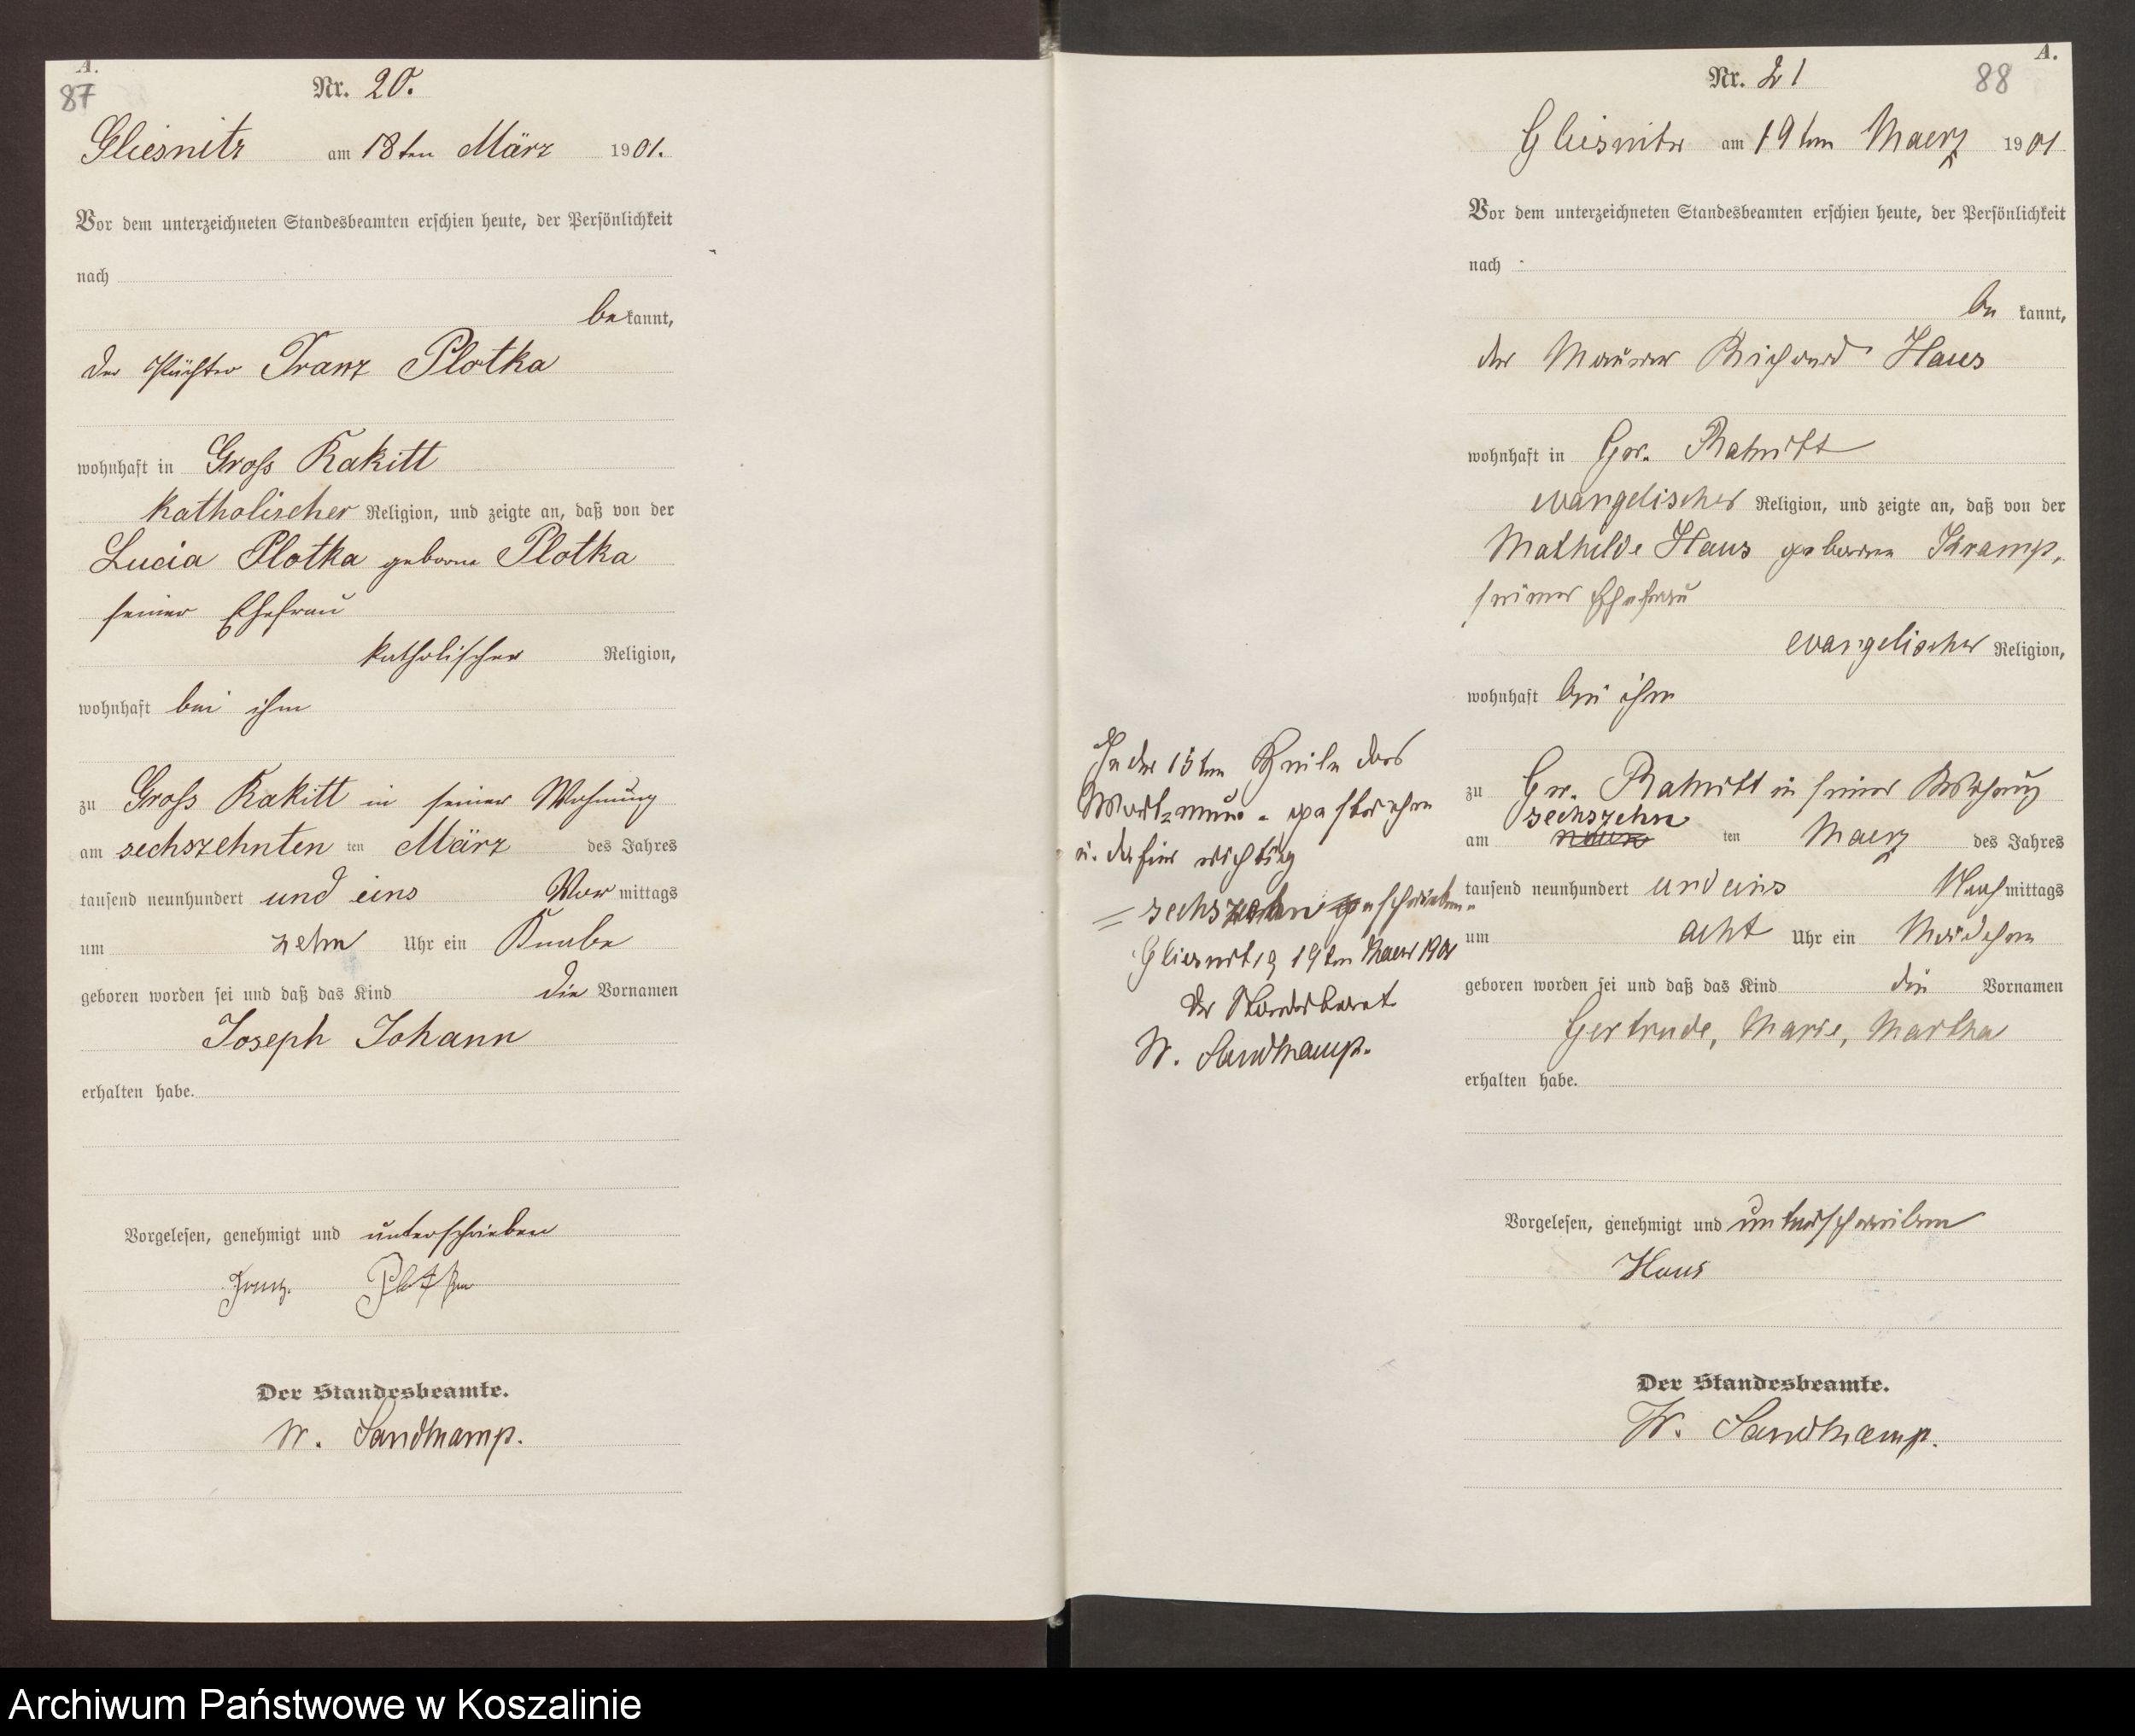 A.
87
Nr. 20.
Gliesnitz am 18ten März 1901.
Vor dem unterzeichneten Standesbeamten erschien heute, der Persönlichkeit
nach
bekannt,
der Pächter Franz Plotka
wohnhaft in Gross Rakitt
katholischer Religion, und zeigte an, daß von der
Lucia Plotka geborne Plotka
seiner Ehefrau
katholischer Religion,
wohnhaft bei ihm
zu Gross Rakitt in seiner Wohnung
am sechszehnten ten März des Jahres
tausend neunhundert und eins Vor mittags
um zehn Uhr ein Knabe
geboren worden sei und daß das Kind die Vornamen
Joseph Johann
erhalten habe.
Vorgelesen, genehmigt und unterschrieben
Franz Plotka
Der Standesbeamte.
W. Sandkamp.
A.
88
Nr. 21
Gliesnitz am 19ten Maerz 1901
Vor dem unterzeichneten Standesbeamten erschien heute, der Persönlichkeit
nach
be kannt,
der Maurer Richard Haus
wohnhaft in Gr. Rakitt
evangelischer Religion, und zeigte an, daß von der
Mathilde Haus geborne Kramp,
seiner Ehefrau
evangelischer Religion,
wohnhaft bei ihm
zu Gr. Rakitt in seiner Wohnung
sechszehn
am neun ten Maerz des Jahres
tausend neunhundert und eins Nach mittags
um acht Uhr ein Mädchen
geboren worden sei und daß das Kind die Vornamen
Gertrude, Marie, Martha
erhalten habe.
Vorgelesen, genehmigt und unterschrieben
Haus
Der Standesbeamte.
W. Sandkamp.
In der 15ten Zeile das
Wort neun gestrichen
u. dafür richtig
= sechszehn geschrieben
Gliesnitz 19ten Maerz 1901
Der Standesbeamt
W. Sandkamp.
Archiwum Państwowe w Koszalinie